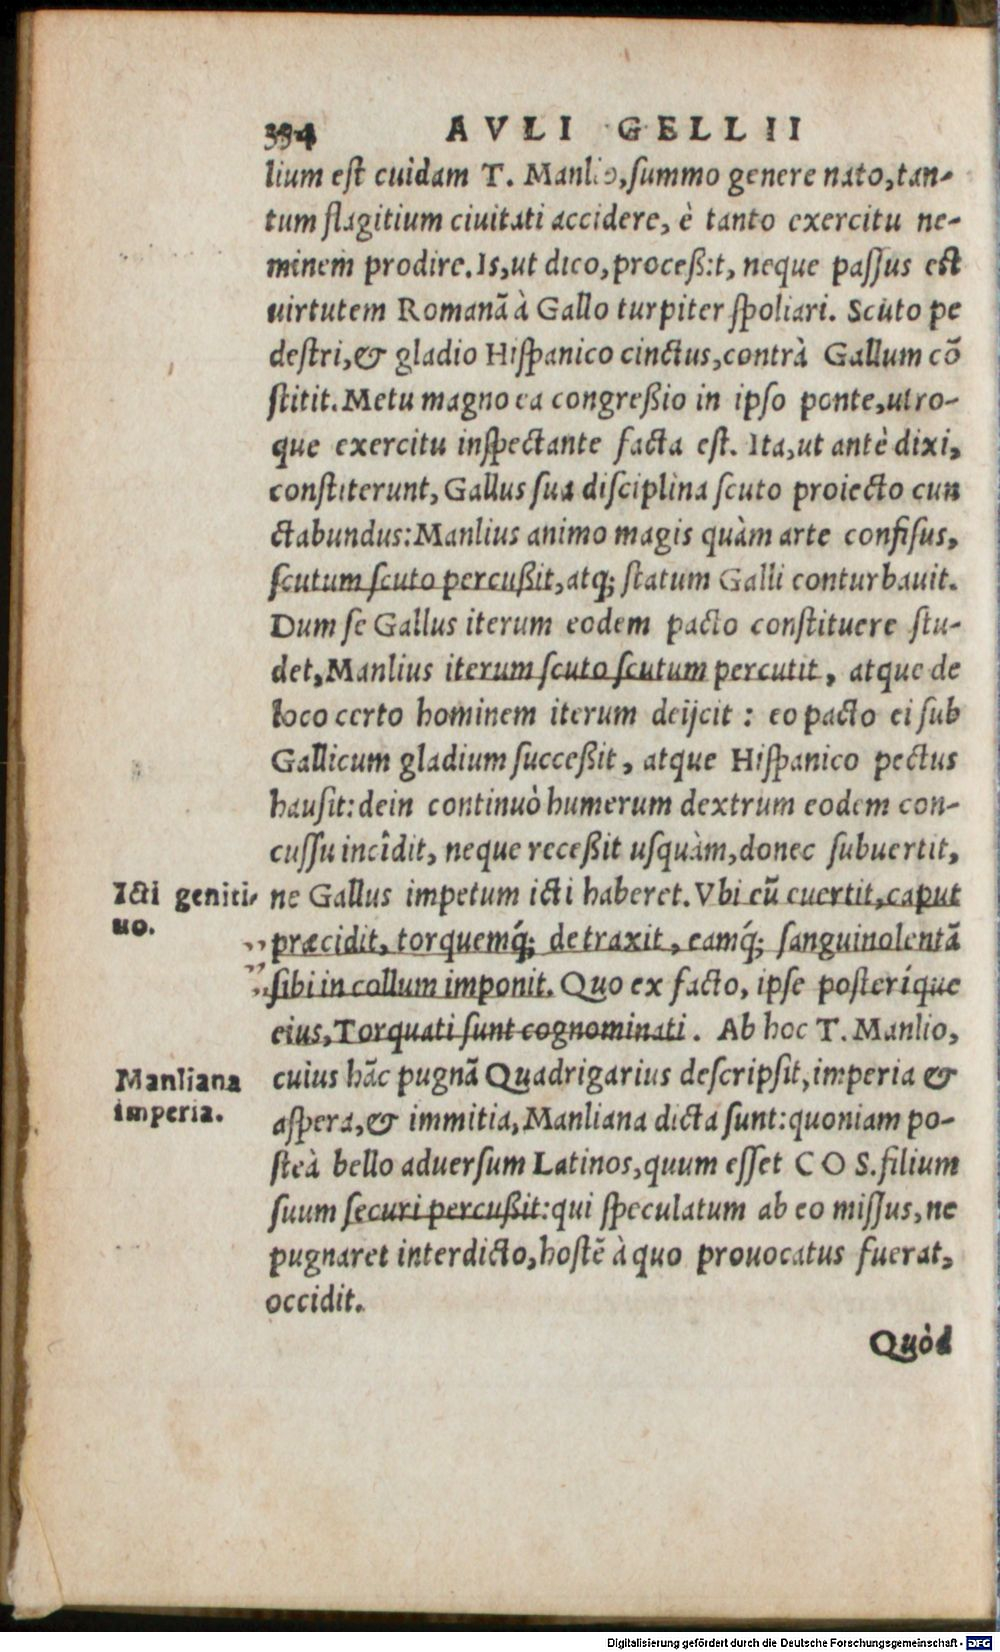 394 AVLI GELLII
lium est cuidam T. Manlio, summo genere nato, tan-
tum flagitium ciuitati accidere, è tanto exercitu ne-
minem prodire. Is, ut dico, proceßit, neque passus est
uirtutem Romanā à Gallo turpiter spoliari. Scuto pe
destri, & gladio Hispanico cinctus, contrà Gallum cō
stitit. Metu magno ea congreßio in ipso ponte, utro-
que exercitu inspectante facta est. Ita, ut antè dixi,
constiterunt, Gallus sua disciplina scuto proiecto cun
ctabundus: Manlius animo magis quàm arte confisus,
scutum scuto percußit, atq; statum Galli conturbauit.
Dum se Gallus iterum eodem pacto constituere stu-
det, Manlius iterum scuto scutum percutit, atque de
loco certo hominem iterum deijcit: eo pacto ei sub
Gallicum gladium succeßit, atque Hispanico pectus
hausit: dein continuò humerum dextrum eodem con-
cussu incîdit, neque receßit usquàm, donec subuertit,
Icti geniti-
uo.
ne Gallus impetum icti haberet. Vbi eū euertit, caput
præcidit, torquemq́; detraxit, eamq́; sanguinolentā
sibi in collum imponit. Quo ex facto, ipse posteríque
eius, Torquati sunt cognominati. Ab hoc T. Manlio,
Manliana
imperia.
cuius hāc pugnā Quadrigarius descripsit, imperia &
aspera, & immitia, Manliana dicta sunt: quoniam po-
steà bello aduersum Latinos, quum esset COS. filium
suum securi percußit: qui speculatum ab eo missus, ne
pugnaret interdicto, hostē à quo prouocatus fuerat,
occidit.
Quòd
Digitalisierung gefördert durch die Deutsche Forschungsgemeinschaft - DFG